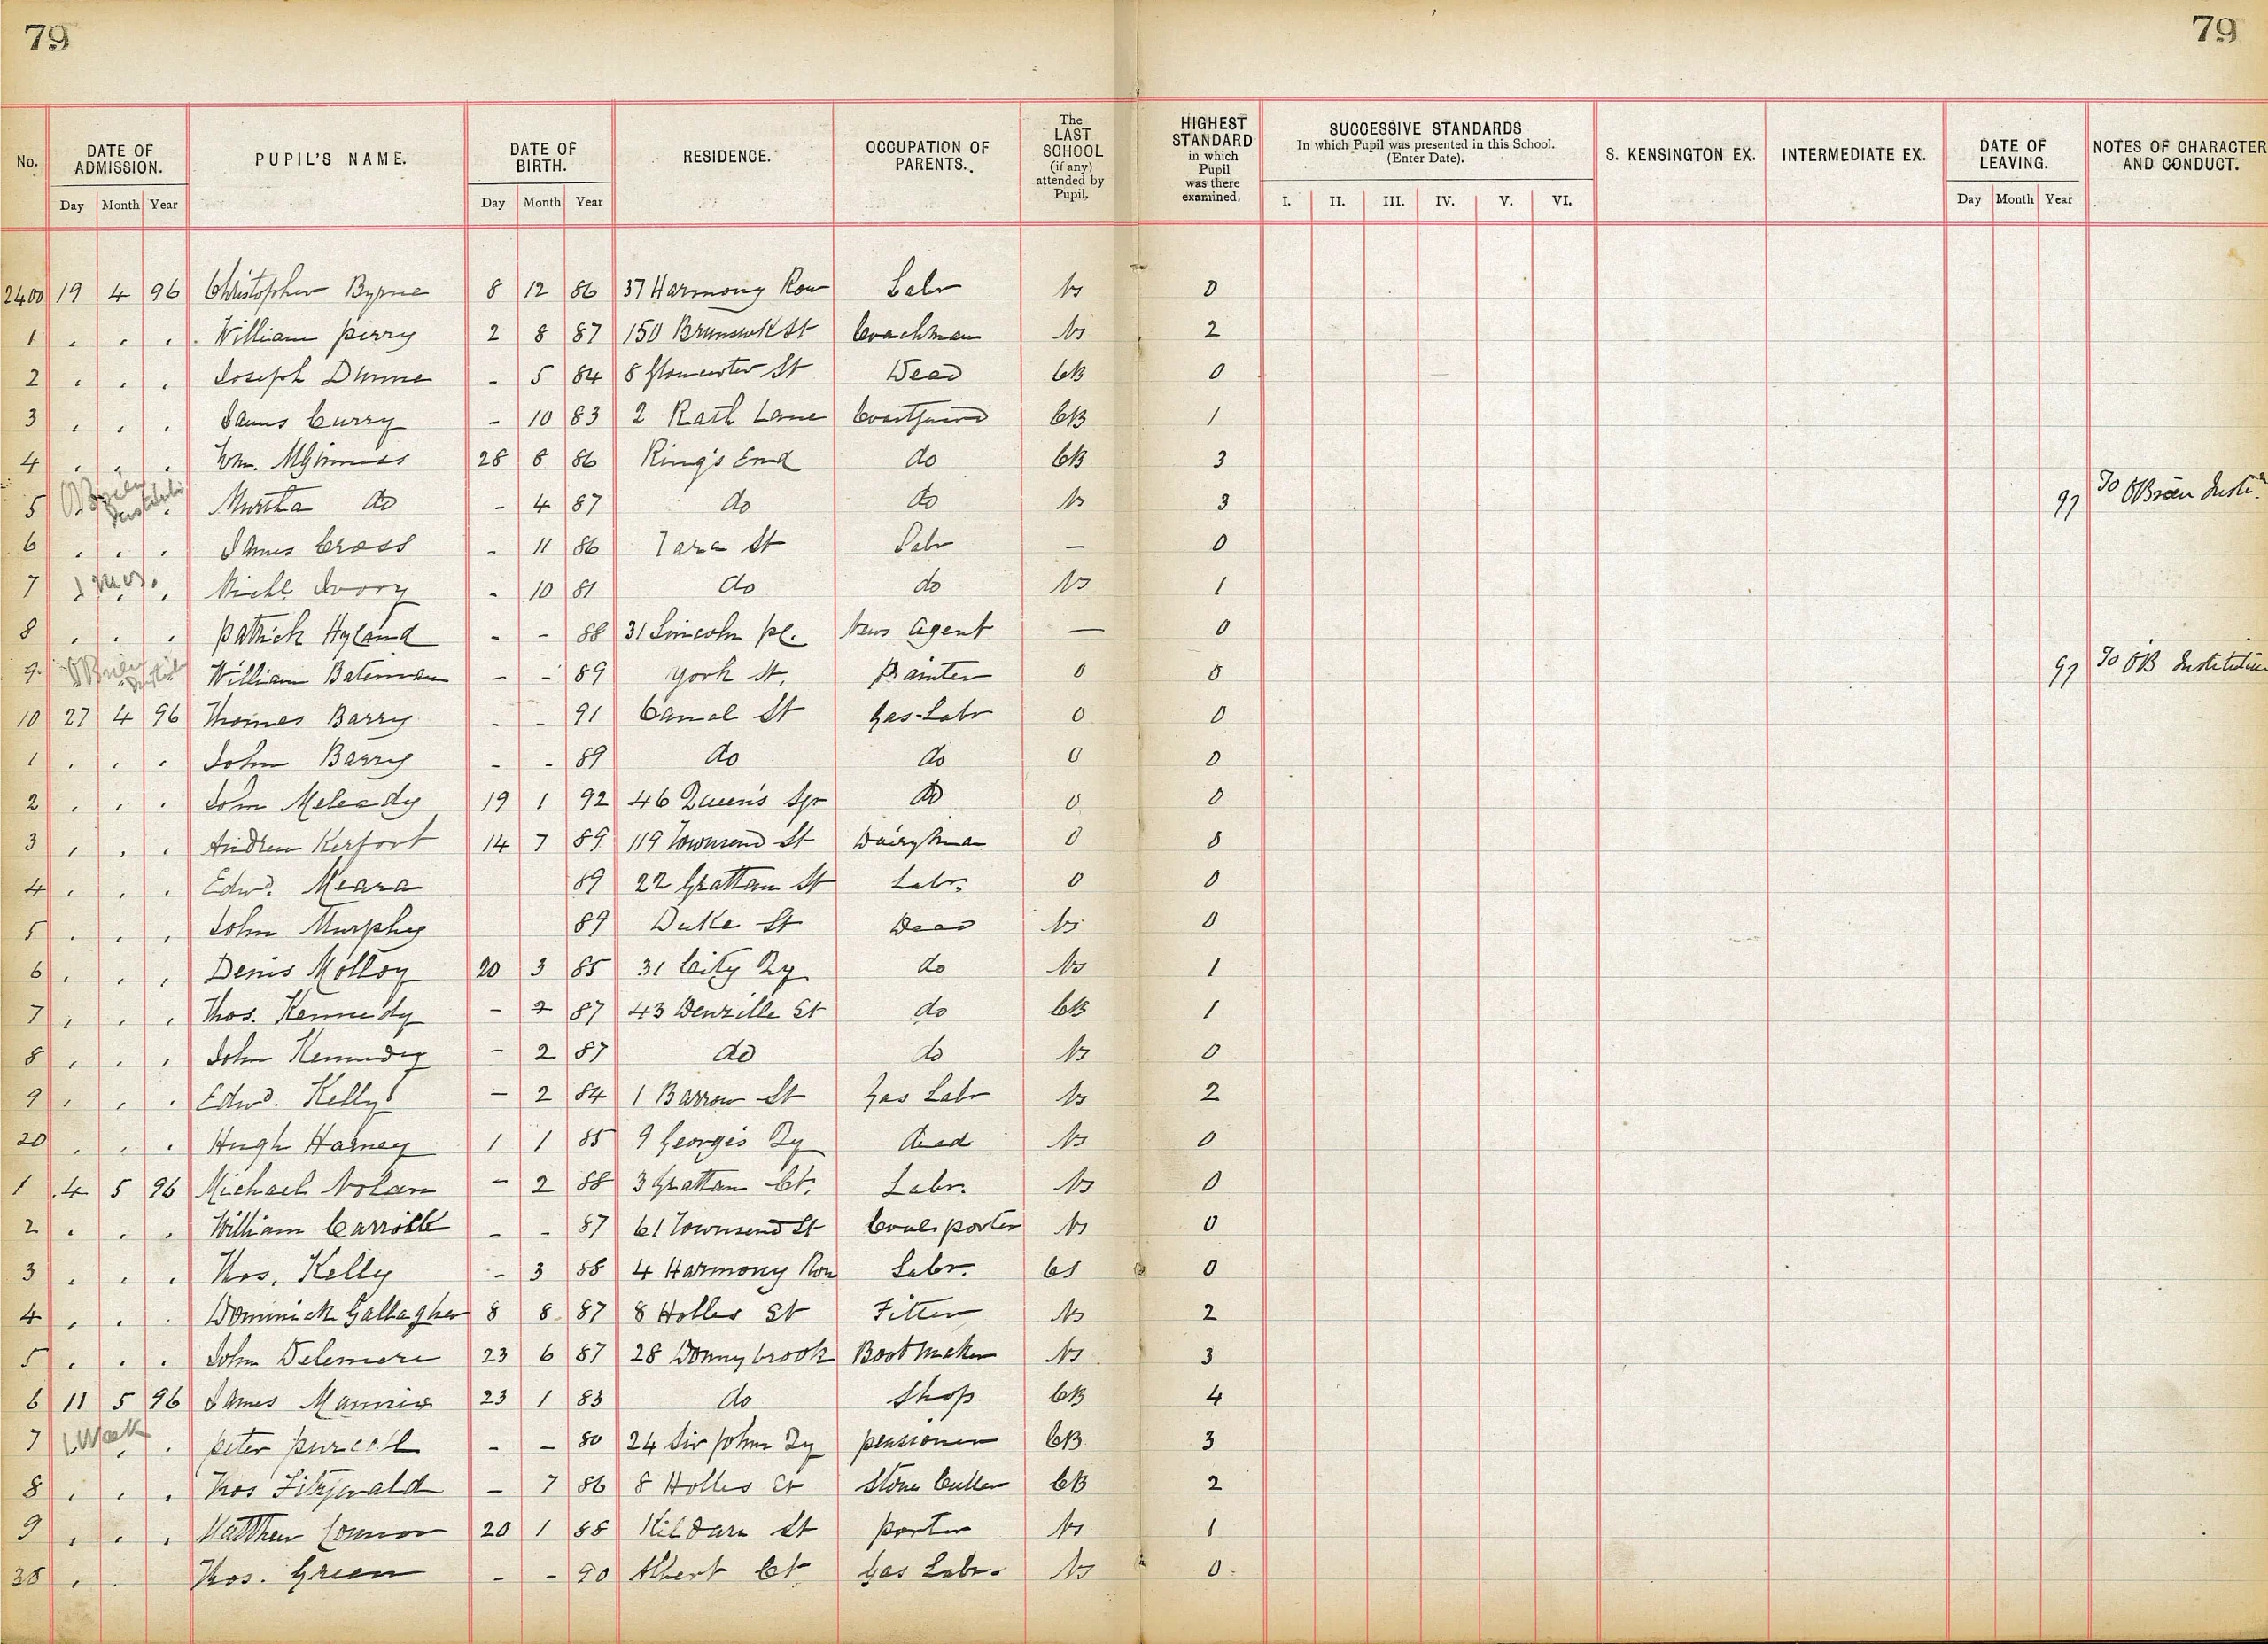 79 79
No. DATE OF ADMISSION. PUPIL'S NAME. DATE OF BIRTH. RESIDENCE. OCCUPATION OF PARENTS. The LAST SCHOOL (if any) attended by Pupil. HIGHEST STANDARD in which Pupil was there examined. SUCCESSIVE STANDARDS In which Pupil was presented in this School. (Enter Date). S. KENSINGTON EX. INTERMEDIATE EX. DATE OF LEAVING. NOTES OF CHARACTER AND CONDUCT.
Day Month Year Day Month Year I. II. III. IV. V. VI. Day Month Year
2400 19 4 96 Christopher Byrne 8 12 86 37 Harmony Row Labr Ns 0
1 " " " William Perry 2 8 87 150 Brunswk St Coachman Ns 2
2 " " " Joseph Dunne - 5 84 8 Gloucester St Dead CB 0
3 " " " James Curry - 10 83 2 Rath Lane Coastguard CB 1
4 " " " Wm. McGinniss 28 8 86 Ring's End do CB 3
5 OBrien Institute " Murtha do - 4 87 do do Ns 3 97 To OBrien Insttn.
6 " " " James Cross - 11 86 Tara St Labr — 0
7 " " Michl Ivory - 10 81 do do Ns 1
8 " " " Patrick Hyland - - 88 31 Lincoln pl. News Agent — 0
9 OBrien Institute William Bateman - - 89 York St. Painter 0 0 97 To OB Institution
10 27 4 96 Thomas Barry - - 91 Canal St Gas-Labr 0 0
1 " " " John Barry - - 89 do do 0 0
2 " " " John Meleady 19 1 92 46 Queen's Sqr do 0 0
3 " " " Andrew Kerfoot 14 7 89 119 Townsend St Dairyman 0 0
4 " " " Edwd. Meara 89 22 Grattan St Labr. 0 0
5 " " " John Murphy 89 Duke St Dead Ns 0
6 " " " Denis Molloy 20 3 85 31 City Qy do Ns 1
7 " " " Thos. Kennedy - 2 87 43 Denzille St do CB 1
8 " " " John Kennedy - 2 87 do do Ns 0
9 " " " Edwd. Kelly - 2 84 1 Barrow St Gas Labr Ns 2
20 " " " Hugh Harney 1 1 85 9 George's Qy dead Ns 0
1 4 5 96 Michael Nolan - 2 88 3 Grattan Ct. Labr. Ns 0
2 " " " William Carroll - - 87 61 Townsend St Coal porter Ns 0
3 " " " Thos. Kelly - 3 88 4 Harmony Row Labr. 0
4 " " " Dominick Gallagher 8 8 87 8 Holles St Fitter Ns 2
5 " " " John Delemere 23 6 87 28 Donnybrook Bootmaker Ns 3
6 11 5 96 James Mannix 23 1 83 do Shop CB 4
7 1 Week " Peter Purcell - - 80 24 Sir John Qy pensioner CB 3
8 " " " Thos Fitzgerald - 7 86 8 Holles St Stone Cutter CB 2
9 " " " Matthew Connor 20 1 88 Kildare St porter Ns 1
30 " " Thos. Green - - 90 Albert Ct Gas Labr. Ns 0